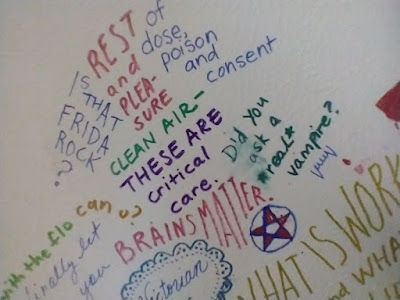 REST
and
PLEA-
SURE
of
dose,
poison
and
consent
IS
THAT
FRIDA
ROCK
?
CLEAN AIR-
THESE ARE
critical
care.
Did You
ask a
*real*
vampire?
can u?
with the flo
finally let
you
BRAINS MATTER.
Victorian
WHAT IS WORK